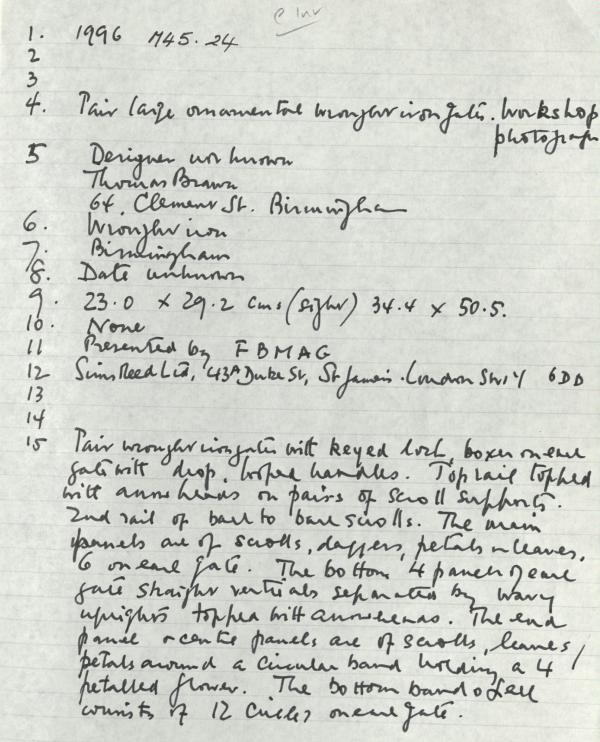 e Inv
1. 1996 M45.24
2
3
4. Pair large ornamental wrought iron gates. Workshop
photograph
5 Designer unknown
Thomas Brawn
64, Clement St. Birmingham
6. Wrought iron
7. Birmingham
8. Date unknown
9. 23.0 x 29.2 cms (sight) 34.4 x 50.5.
10. None
11 Presented by FBMAG
12 Sims Reed Ltd, 43A Duke St, St James. London SW1Y 6DD
13
14
15 Pair wrought iron gates with keyed lock, boxes on each
gate with drop, looped handles. Top rail topped
with arrowheads on pairs of scroll supports.
2nd rail of back to back scrolls. The main
panels are of scrolls, daggers, petals or leaves,
6 on each gate. The bottom 4 panels of each
gate straight verticals separated by wavy
uprights topped with arrowheads. The end
panel & centre panels are of scrolls, leaves/
petals around a circular band holding a 4
petalled flower. The bottom band of all
consists of 12 circles on each gate.